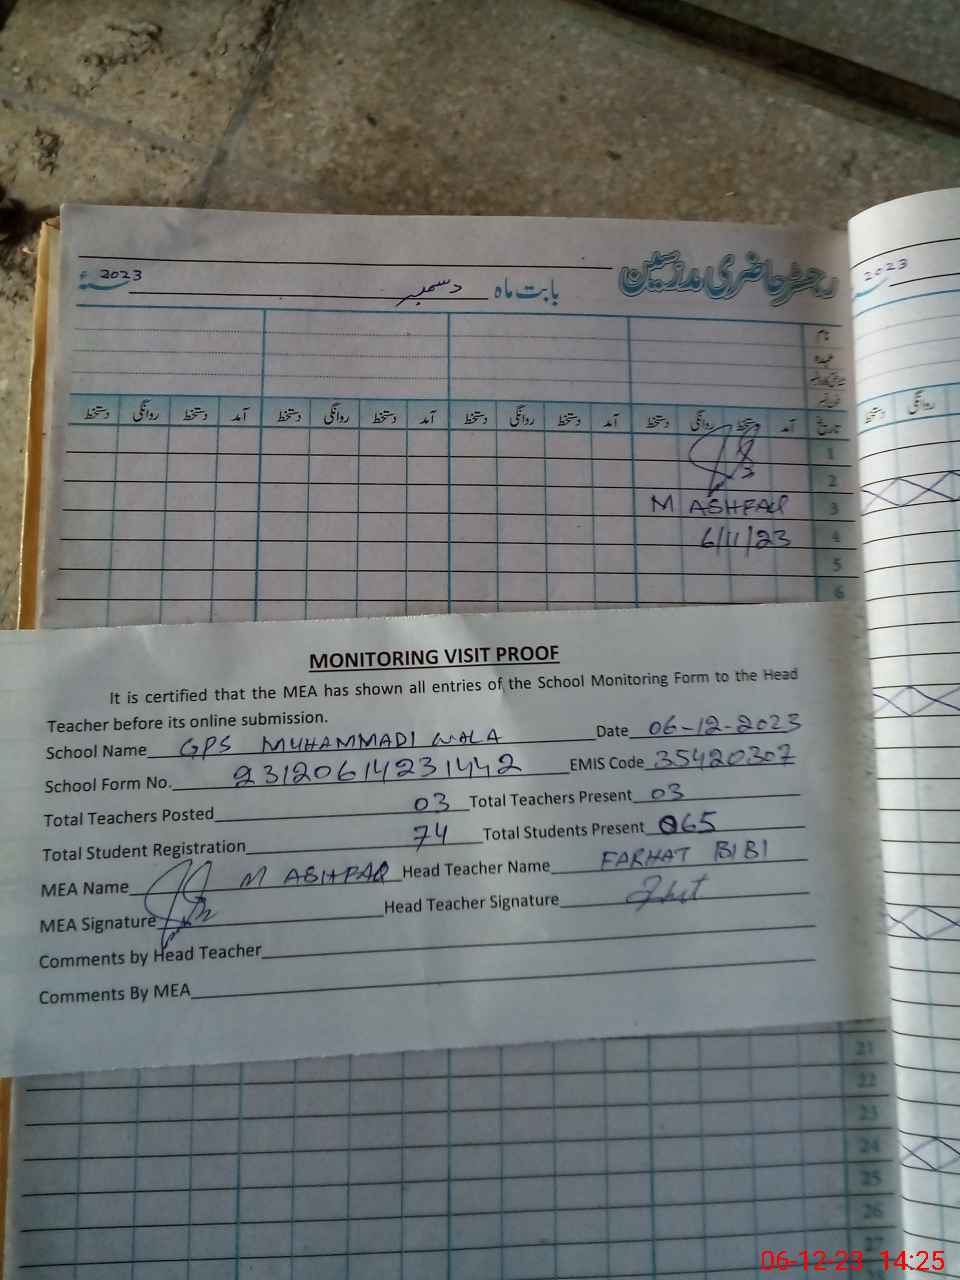 رجسٹر حاضری مدرسین
بابت ماہ دسمبر 2023ء
2023
نام
عہدہ
تاریخ آمد دستخط روانگی دستخط آمد دستخط روانگی دستخط آمد دستخط روانگی دستخط آمد دستخط روانگی دستخط
روانگی دستخط
1
2
3 M ASHFAQ
4 6/11/23
5
6
MONITORING VISIT PROOF
It is certified that the MEA has shown all entries of the School Monitoring Form to the Head
Teacher before its online submission.
School Name GPS MUHAMMADI WALA Date 06-12-2023
School Form No. 23120614231442 EMIS Code 35420307
Total Teachers Posted 03 Total Teachers Present 03
Total Student Registration 74 Total Students Present 065
MEA Name M ASHFAQ Head Teacher Name FARHAT BIBI
MEA Signature Head Teacher Signature
Comments by Head Teacher
Comments By MEA
21
22
23
24
25
26
27
06-12-23 14:25